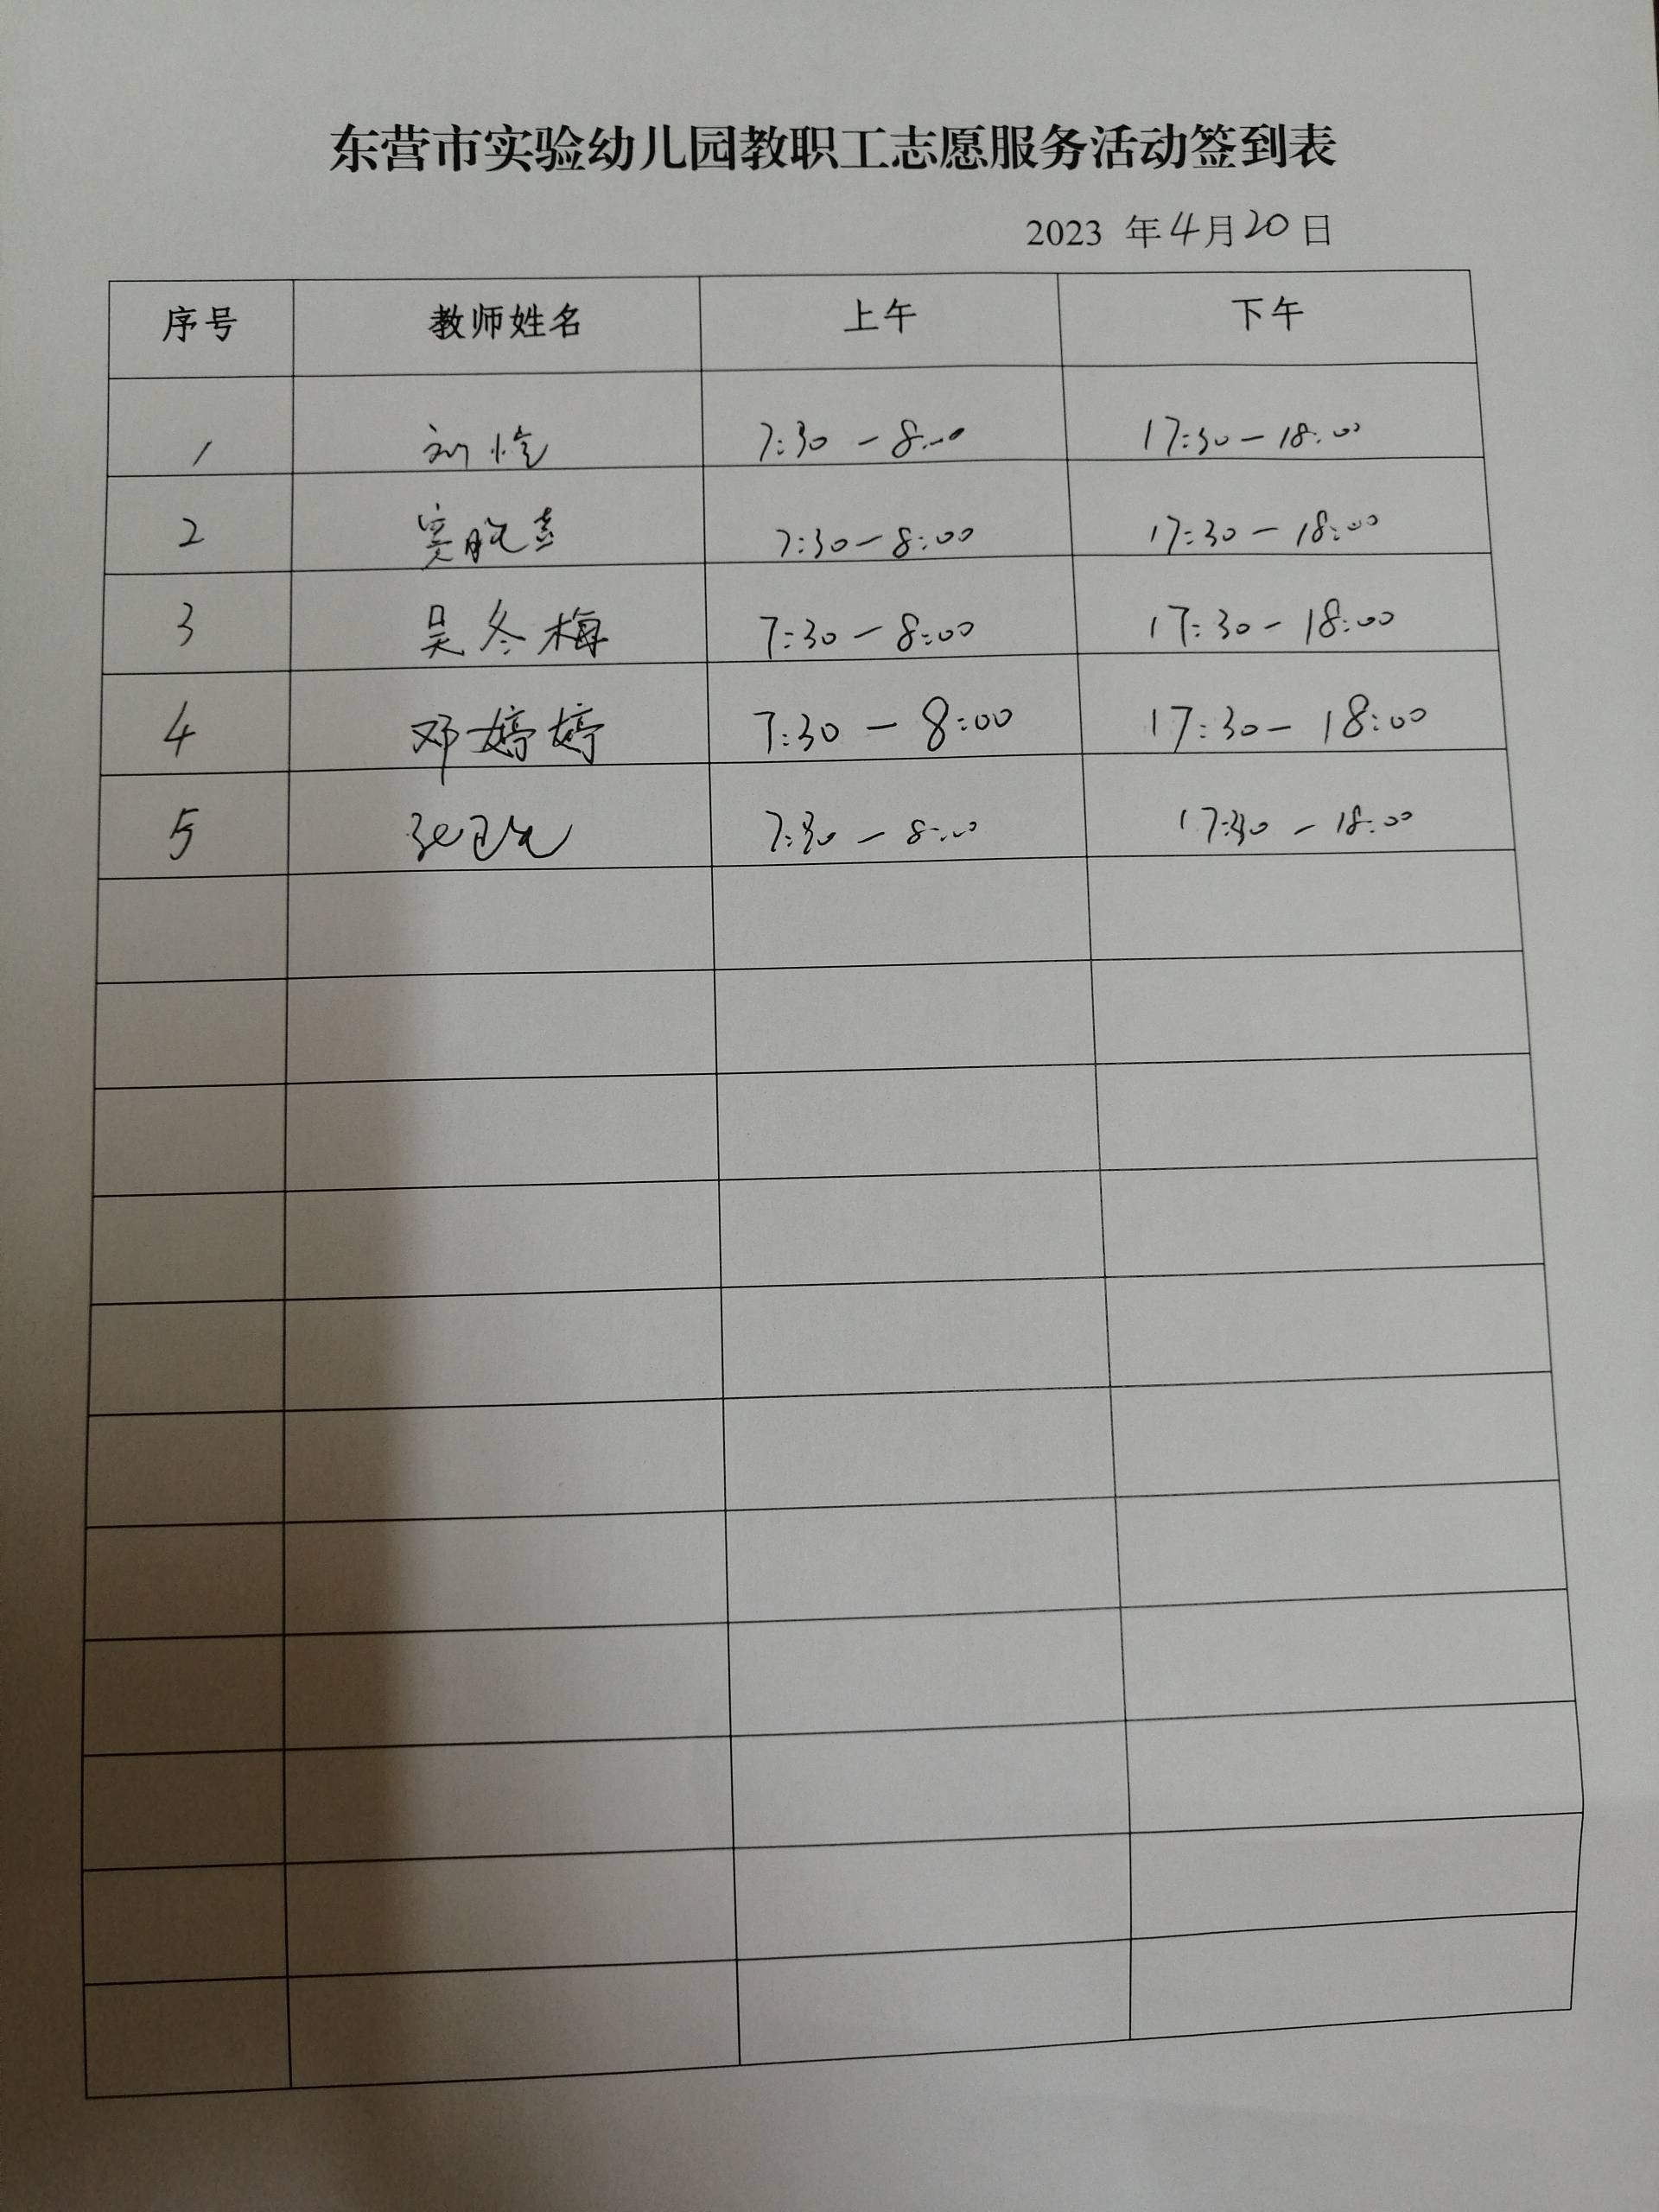 东营市实验幼儿园教职工志愿服务活动签到表
2023 年4月20日
序号 教师姓名 上午 下午
1 刘 7:30-8:00 17:30-18:00
2 窦晓 7:30-8:00 17:30-18:00
3 吴冬梅 7:30-8:00 17:30-18:00
4 邓婷婷 7:30-8:00 17:30-18:00
5 张 7:30-8:00 17:30-18:00